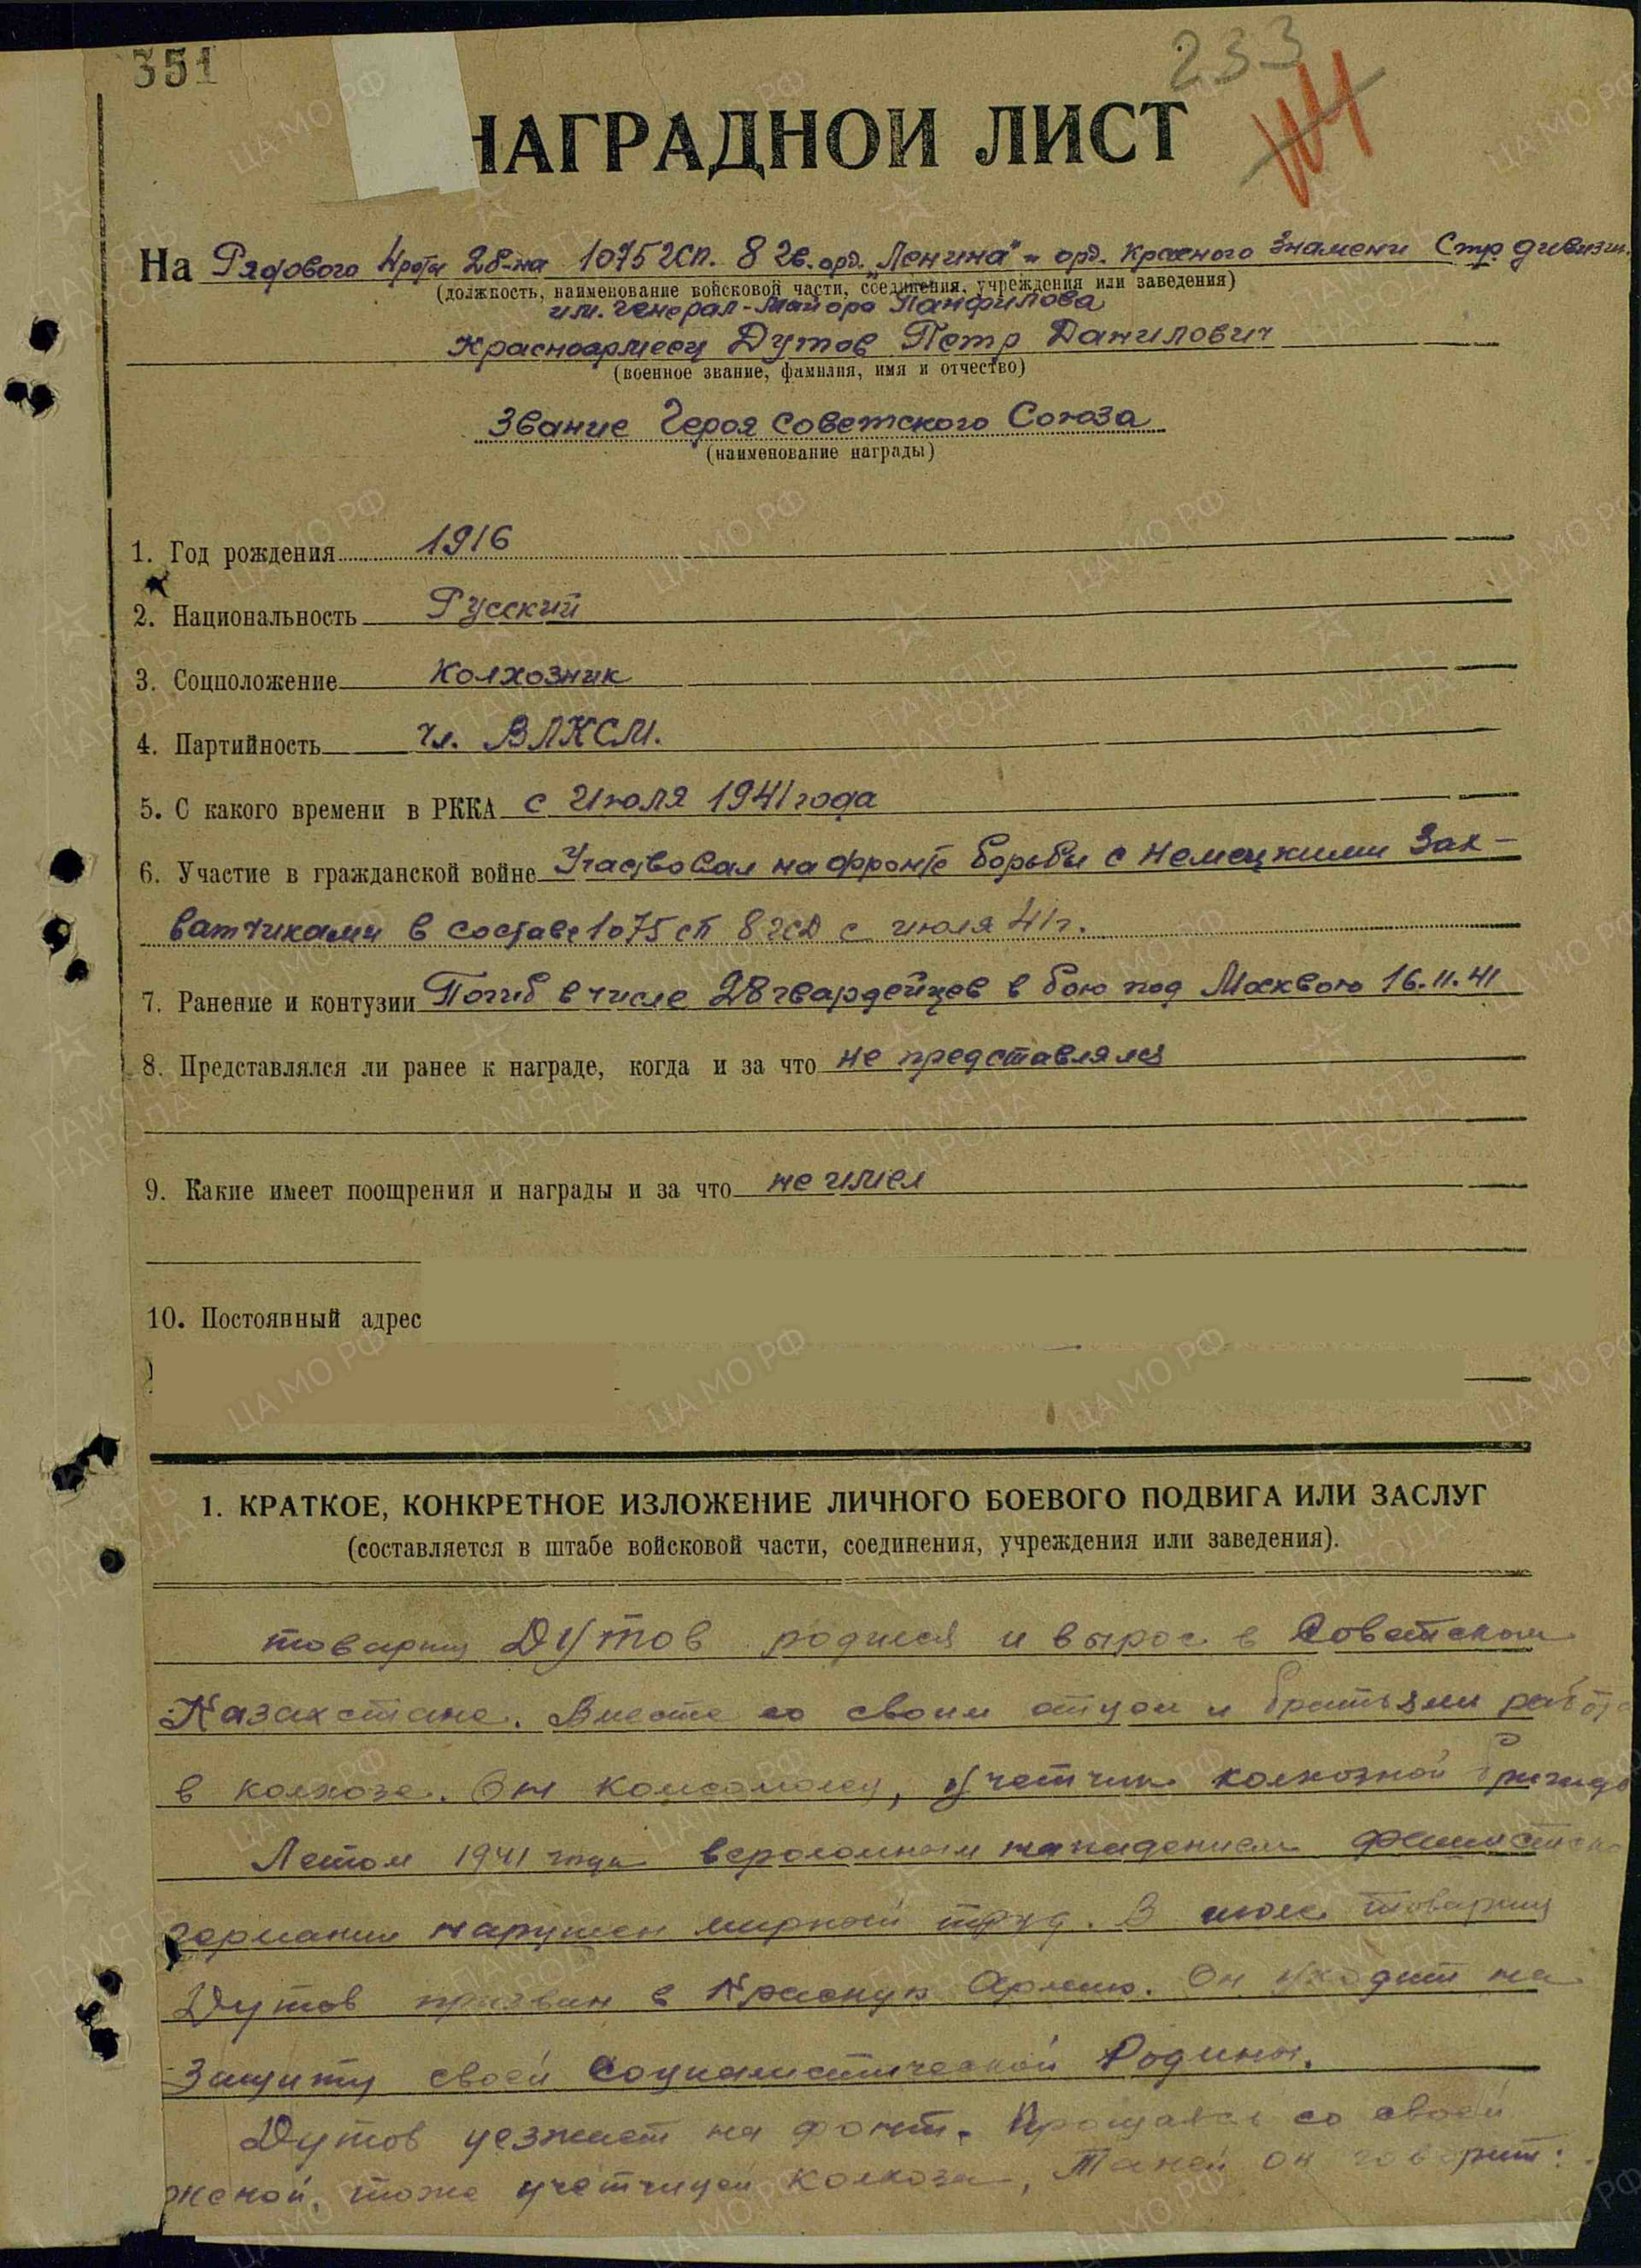 351
233
НАГРАДНОЙ ЛИСТ
На Рядового 4 роты 2 б-на 1075 гсп. 8 гв. орд. „Ленина" и орд. Красного Знамени Стр дивизии
(должность, наименование войсковой части, соединения, учреждения или заведения)
им. генерал-майора Панфилова
Красноармеец Дутов Петр Данилович
(военное звание, фамилия, имя и отчество)
Звание Героя Советского Союза
(наименование награды)
1. Год рождения 1916
2. Национальность Русский
3. Соцположение Колхозник
4. Партийность Чл. ВЛКСМ.
5. С какого времени в РККА с Июля 1941 года
6. Участие в гражданской войне Участвовал на фронте борьбы с немецкими Зах-
ватчиками в составе 1075 сп 8 гсд с июля 41 г.
7. Ранение и контузии Погиб в числе 28 гвардейцев в бою под Москвою 16.11.41
8. Представлялся ли ранее к награде, когда и за что не представлялся
9. Какие имеет поощрения и награды и за что не имел
10. Постоянный адрес
1. КРАТКОЕ, КОНКРЕТНОЕ ИЗЛОЖЕНИЕ ЛИЧНОГО БОЕВОГО ПОДВИГА ИЛИ ЗАСЛУГ
(составляется в штабе войсковой части, соединения, учреждения или заведения).
товарищ Дутов родился и вырос в Советском
Казахстане. Вместе со своим отцом и братьями работа
в колхозе. Он комсомолец, учетчик колхозной бригады
Летом 1941 года вероломным нападением фашистско
германии нарушен мирный труд. В июле товарищ
Дутов призван в Красную Армию. Он уходит на
Защиту своей социалистической Родины.
Дутов уезжает на фонт. Прощаясь со своей
женой, тоже учетчицей колхоза, Таней он говорит:
ЦА МО РФ
ПАМЯТЬ НАРОДА